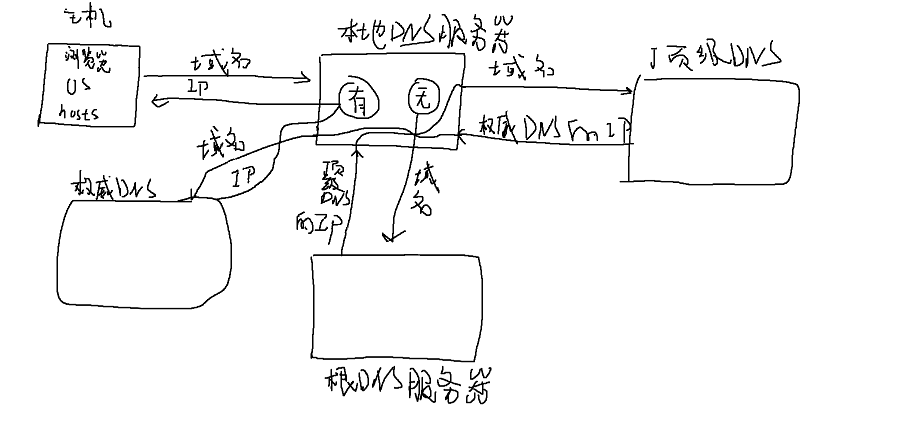 主机
浏览器
OS
hosts
域名
IP
本地DNS服务器
有
无
域名
顶级DNS
权威DNS的IP
域名
IP
权威DNS
顶级DNS
的IP
域名
根DNS服务器